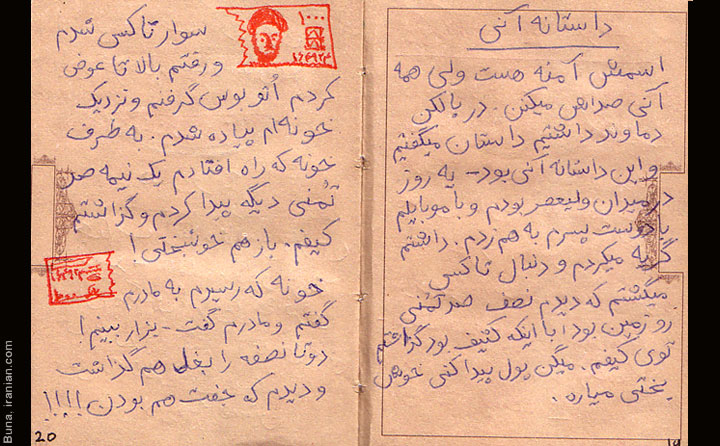 داستانه آنی
اسمش آمنه هست ولی همه
آنی صداش میکنن. در بالکن
دماوند داشتیم داستان میگفتیم
و این داستانه آنی بود - یه روز
در میدان ولیعصر بودم و با موبایلم
با دوست پسرم به هم زدم. داشتم
گریه میکردم و دنبال تاکسی
میگشتم که دیدم نصف صد تمنی
رو زمین بود! با اینکه کثیف بود گذاشتم
توی کیفم. میگن پول پیدا کنی خوش
بختی میاره.
سوار تاکسی شدم
و رفتم بالا تا عوض
کردم اُتوبوس گرفتم و نزدیک
خونه ام پیاده شدم. به طرف
خونه که راه افتادم یک نیمه صد
تُمنی دیگه پیدا کردم و گذاشتم
کیفم. باز هم خوشبختی!
خونه که رسیدم به مادرم
گفتم و مادرم گفت - بزار ببینم!
دو تا نصفه را بغل هم گذاشت
و دیدم که جفت هم بودن!!!!!
20
Buna, iranian.com